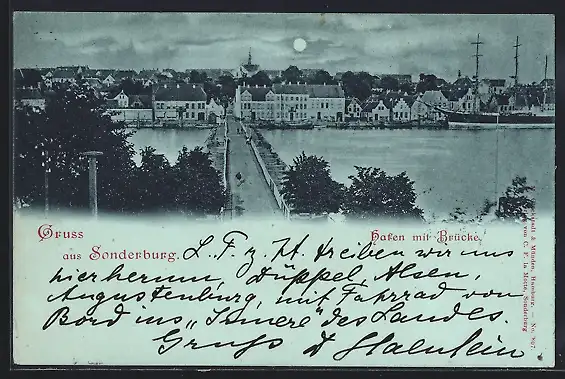 Gruss
aus Sonderburg.
Hafen mit Brücke.
L. F. z. Zt. treiben wir uns
hierherum, Düppel, Alsen,
Augustenburg, mit Fahrrad von
Bord ins "Innere" des Landes.
Gruss
& Münden, Hamburg. — No. 807.
v. C. F. la Motte, Sonderburg